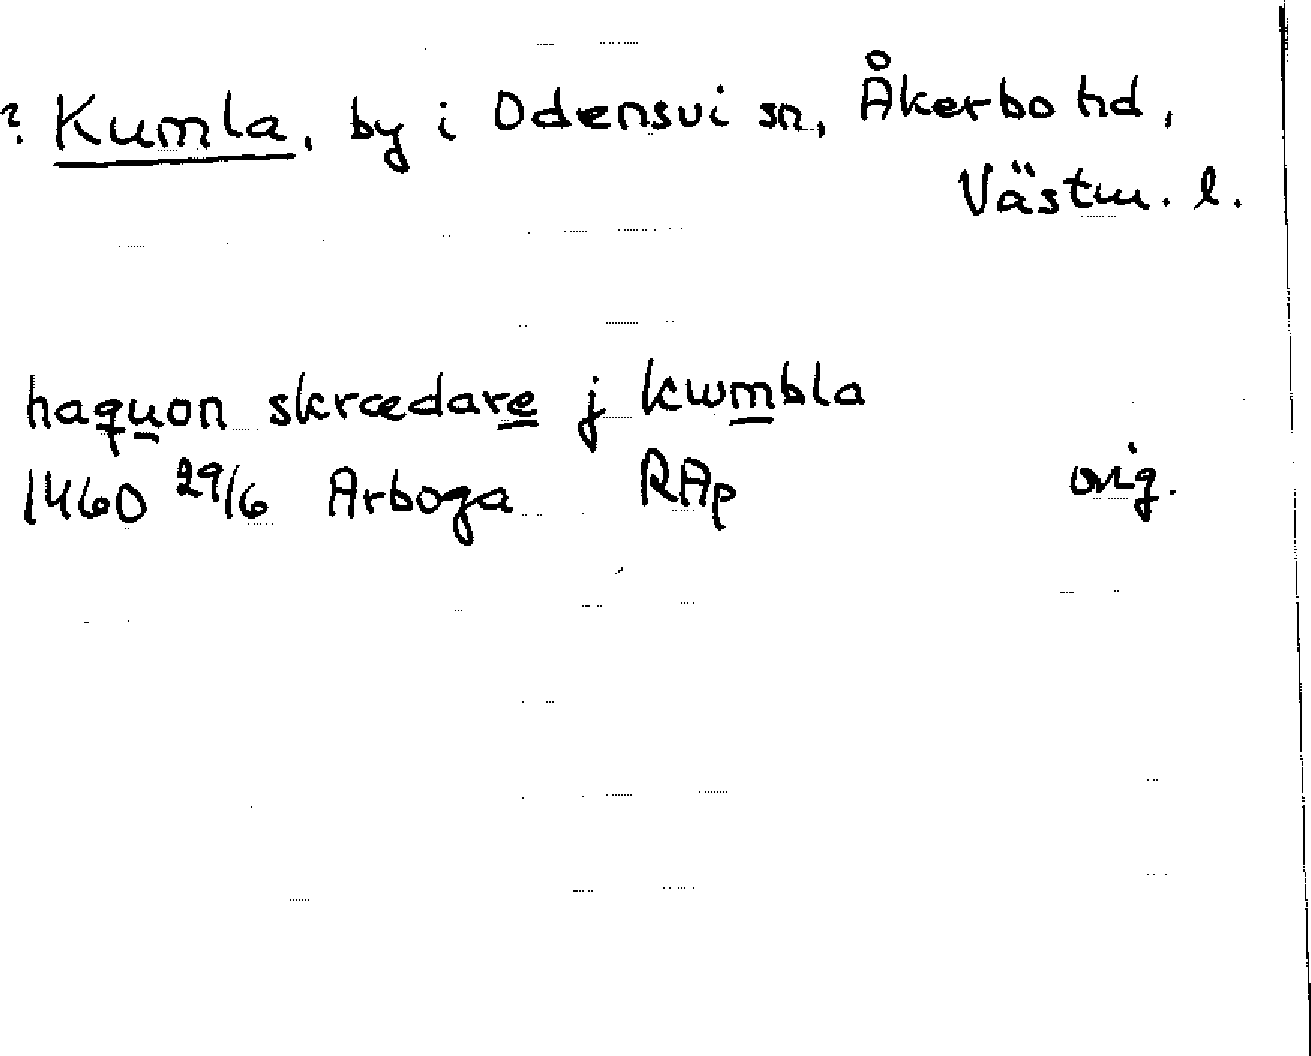 ? Kumla, by i Odensvi sn, Åkerbo hd,
Västm. l.
haquon skrædare j kwmbla
1460 29/6 Arboga RAp orig.